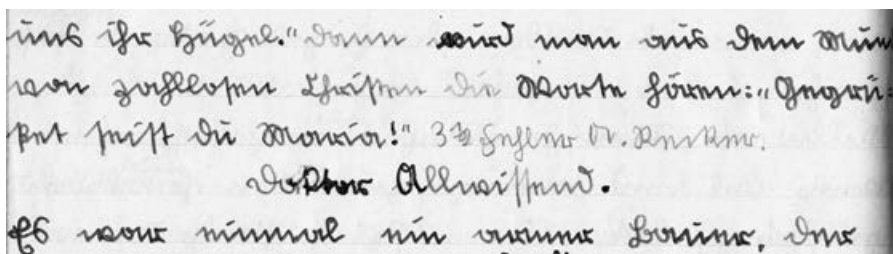 uns ihr Hügel." Dann wird man aus dem Mun
von zahllosen Christen die Worte hören: „Gegrü-
ßet seist du Maria!" 3½ Fehler A. Recker.
Doktor Allwissend.
Es war einmal ein armer Bauer, der